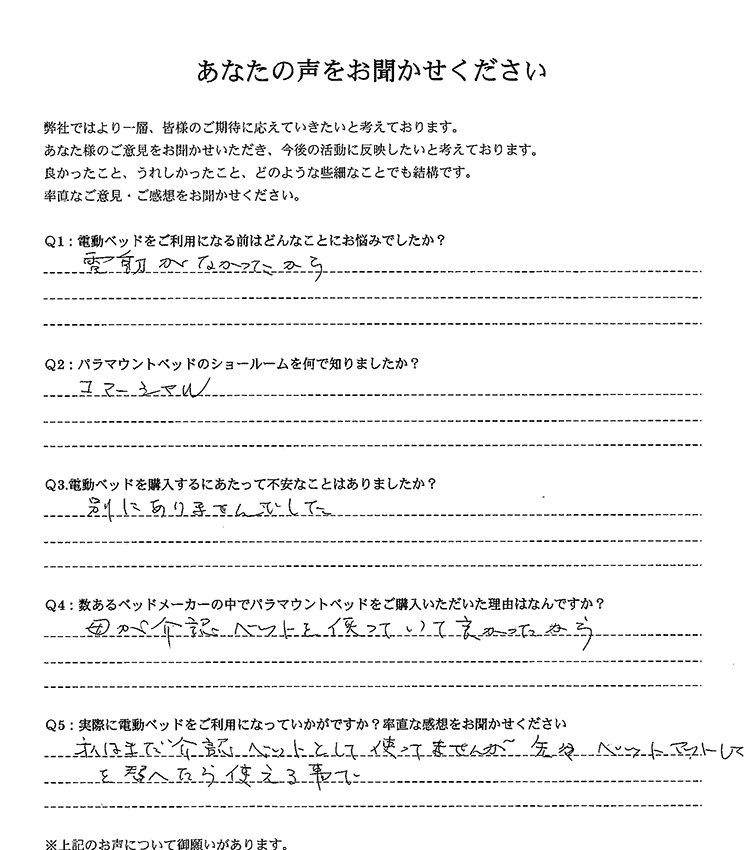 あなたの声をお聞かせください
弊社ではより一層、皆様のご期待に応えていきたいと考えております。
あなた様のご意見をお聞かせいただき、今後の活動に反映したいと考えております。
良かったこと、うれしかったこと、どのような些細なことでも結構です。
率直なご意見・ご感想をお聞かせください。
Q1：電動ベッドをご利用になる前はどんなことにお悩みでしたか？
電動がなかったから
Q2：パラマウントベッドのショールームを何で知りましたか？
コマーシャル
Q3.電動ベッドを購入するにあたって不安なことはありましたか？
別にありませんでした
Q4：数あるベッドメーカーの中でパラマウントベッドをご購入いただいた理由はなんですか？
母が介認ベットを使っていて良かったから
Q5：実際に電動ベッドをご利用になっていかがですか？率直な感想をお聞かせください
私はまだ介認ベットとして使ってませんが ベットマットレ
を替へたら使える事で
※上記のお声について御願いがあります。